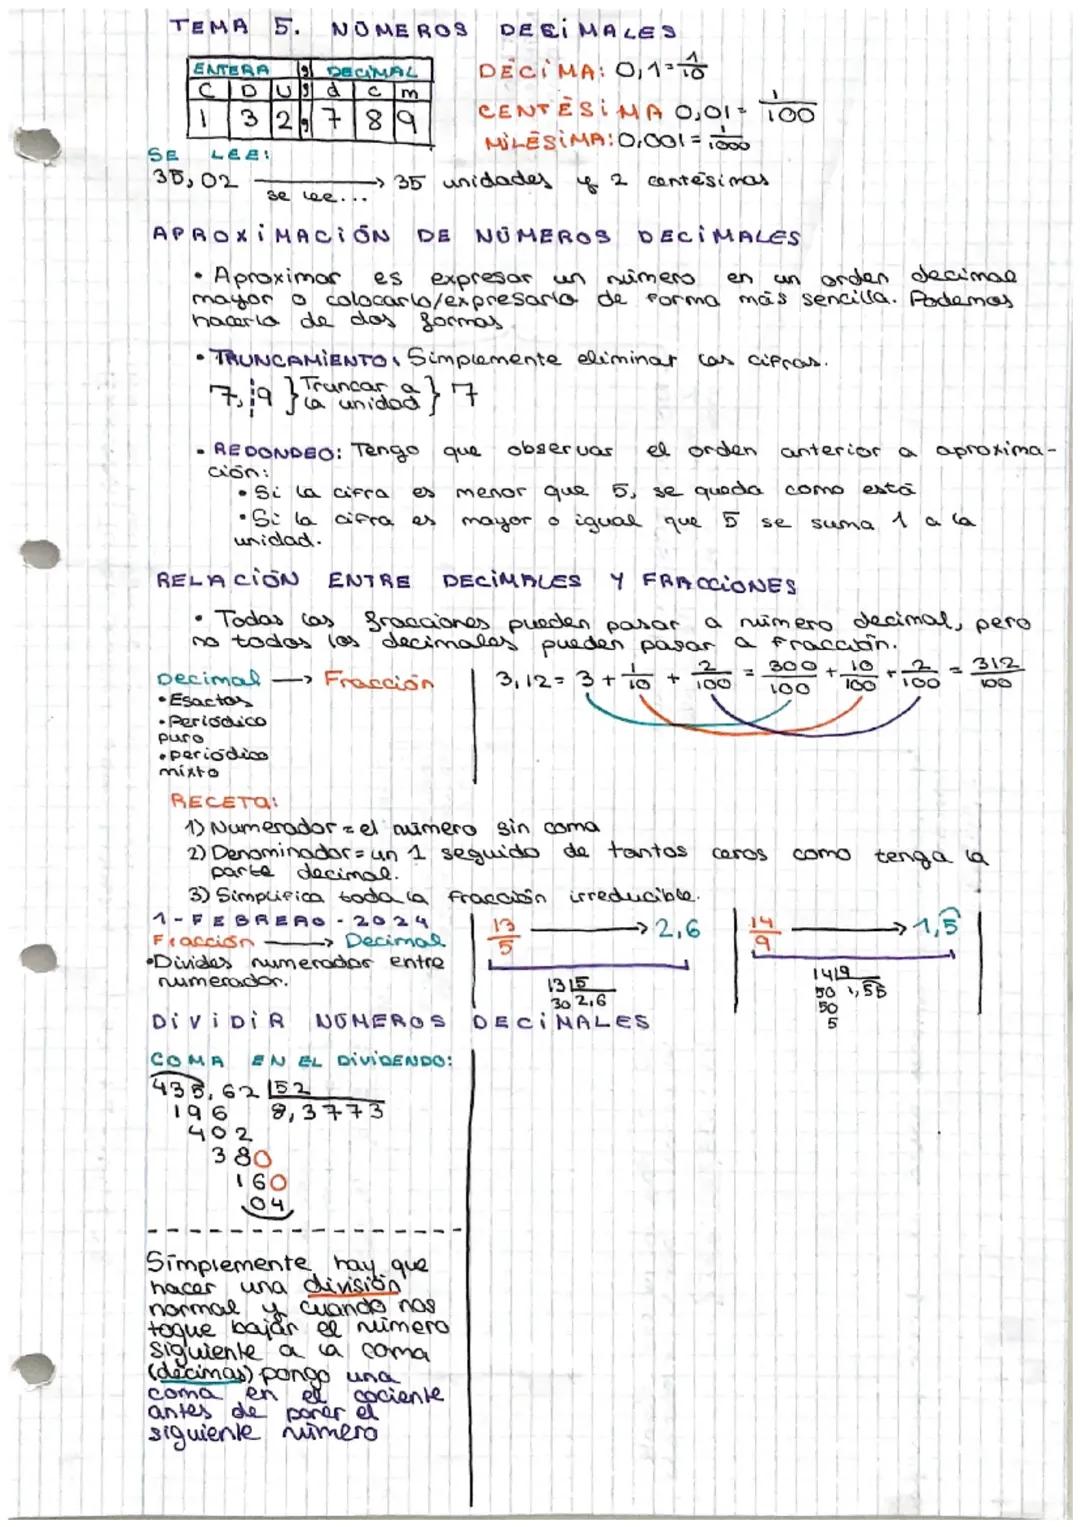 TEMA 5. NÚMEROS DECIMALES
ENTERA , DECIMAL
C D U , d c m
1 3 2 , 7 8 9
DÉCIMA: 0,1=1/10
CENTÉSIMA 0,01= 1/100
MILÉSIMA: 0,001=1/1000
SE LEE:
35,02 se lee... → 35 unidades y 2 centésimas
APROXIMACIÓN DE NÚMEROS DECIMALES
• Aproximar es expresar un número en un orden decimal
mayor o colocarlo/expresarlo de forma más sencilla. Podemos
hacerlo de dos formas
• TRUNCAMIENTO: Simplemente eliminar las cifras.
7,¦9 } Truncar a la unidad } 7
• REDONDEO: Tengo que observar el orden anterior a aproxima-
ción:
• Si la cifra es menor que 5, se queda como está
• Si la cifra es mayor o igual que 5 se suma 1 a la
unidad.
RELACIÓN ENTRE DECIMALES Y FRACCIONES
• Todas las fracciones pueden pasar a número decimal, pero
no todos los decimales pueden pasar a fracción.
Decimal → Fracción
• Esactos
• Periódico
puro
• periódico
mixto
3,12= 3 + 1/10 + 2/100 = 300/100 + 10/100 + 2/100 = 312/100
RECETA:
1) Numerador = el número sin coma
2) Denominador = un 1 seguido de tantos ceros como tenga la
parte decimal.
3) Simplifica toda la fracción irreducible.
1 - FEBRERO - 2024
Fracción → Decimal
• Divides numerador entre
numerador.
13/5 → 2,6
13 |5
30 2,6
14/9 → 1,5̂
14 |9
50 1,55
50
5
DIVIDIR NÚMEROS DECIMALES
COMA EN EL DIVIDENDO:
435,62 |52
196 8,3773
402
380
160
04
Simplemente hay que
hacer una división
normal y cuando nos
toque bajar el número
siguiente a la coma
(décimas) pongo una
coma en el cociente
antes de poner el
siguiente número